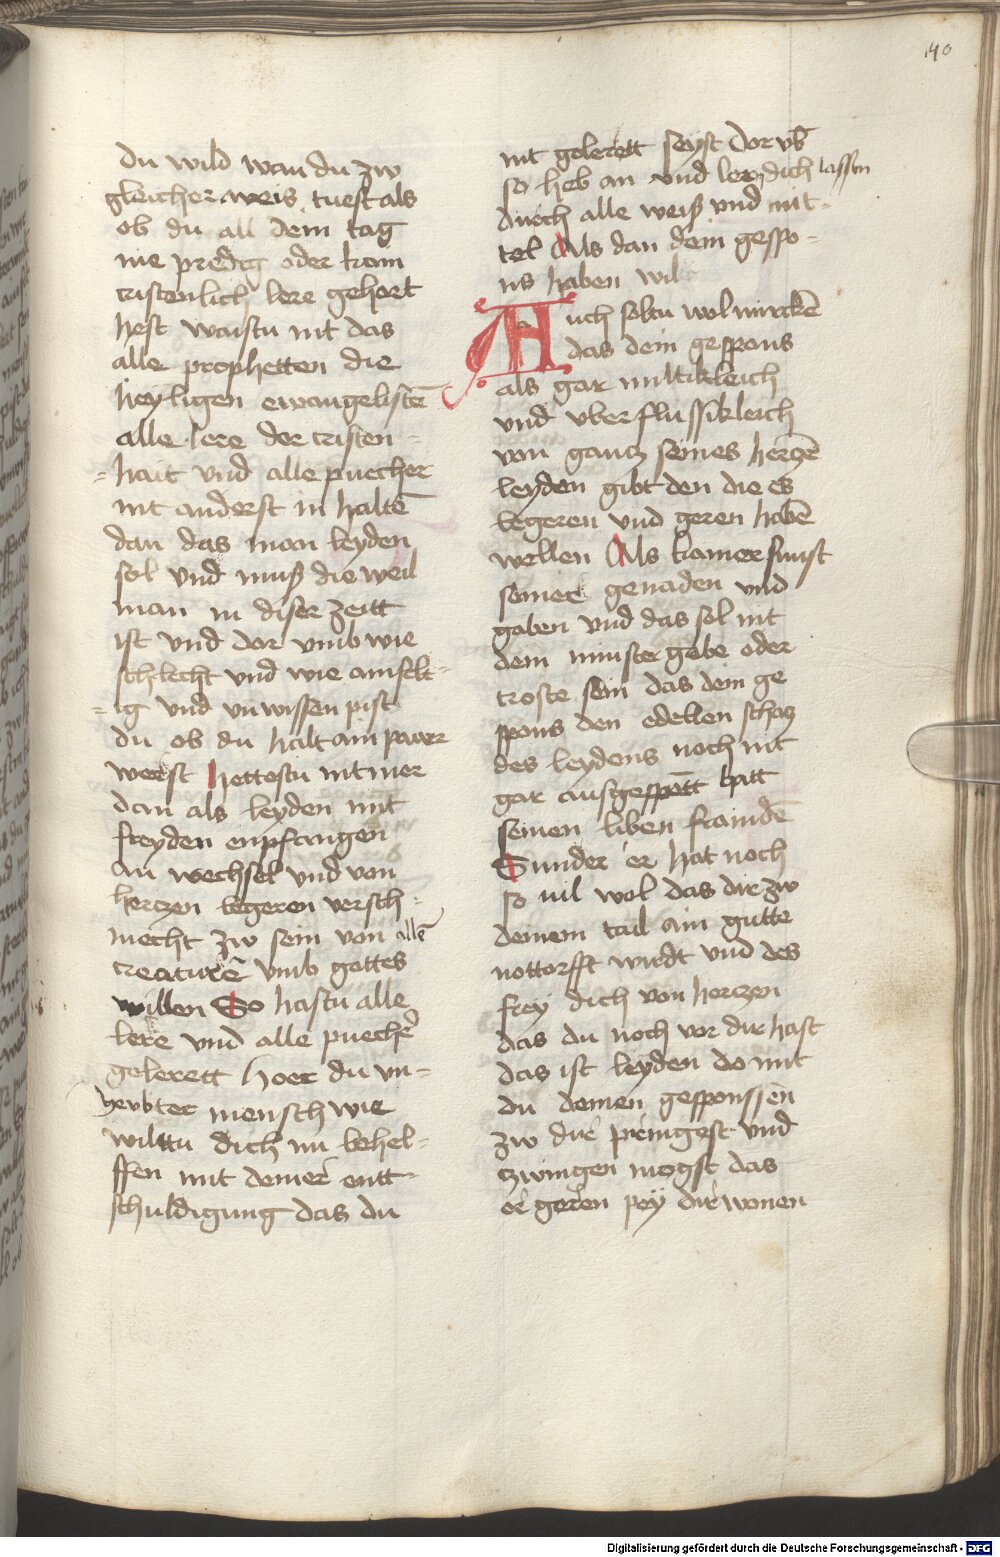 140
du wild wan du zw
gleicher weis tuest als
ob du all dein tag
nie predig oder kain
cristenlich lere gehort
hest waistu nit das
alle prophetten die
heyligen ewangelistē
alle lere der cristen-
-hait vnd alle puecher
nit anderst in haltē
dan das man leyden
sol vnd muß die weil
man in diser zeitt
ist vnd dor vmb wie
schlecht vnd wie ainfelt-
-ig vnd vnwissen pist
du ob du halt ain pawer
werst hettestu nit mer
dan als leyden mit
freyden enpfangen
an wechsel vnd von
hertzen begeren versch-
mecht zw sein von allē
creaturē vmb gottes
willen So hastu alle
lere vnd alle puechē
gelerett hoer du vn-
yeubter mensch wie
wilttu dich nu behel-
ffen mit deiner entt-
schuldigung das du
nit gelerett seyst dor vb̄
so heb an vnd ler dich lassen
durch alle weiß vnd mit-
tel Als dan dein gespo-
ns haben wil
Auch soltu wol mirckē
das dein gespons
als gar miltikleich
vnd vberflussikleich
von gantz seines hertzē
leyden gibt den die es
begeren vnd geren habē
wellen Als kamer sunst
seiner genaden vnd
gaben vnd das sol nit
dein minste gabe oder
troste sein das dein ge
spons den edellen schatz
des leydens noch nit
gar ausgespētt hatt
seinen liben fraindē
Sunder er hat noch
so uil wol das dir zw
deinem tail ain gutte
nottorfft wirdt vnd des
frey dich von hertzen
das du noch vor dir hast
das ist leyden do mit
du deinen gesponssen
zw dir preingest vnd
zwingen mogst das
er geren pey dir wonen
Digitalisierung gefördert durch die Deutsche Forschungsgemeinschaft - DFG